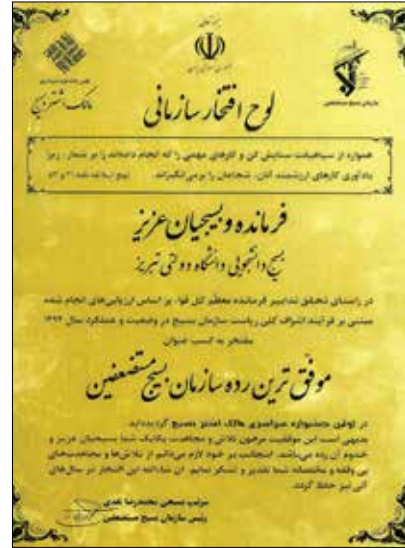 مالک اشتر بسیج
سازمان بسیج مستضعفین
لوح افتخار سازمانی
همواره از سپاهیانت ستایش کن و کارهای مهمی را که انجام داده‌اند را بر شمار، زیرا
یادآوری کارهای ارزشمند آنان، شجاعان را برمی‌انگیزاند.
فرمانده و بسیجیان عزیز
بسیج دانشجویی دانشگاه دولتی تبریز
در راستای تحقق تدابیر فرمانده معظم کل قوا، بر اساس ارزیابی‌های انجام شده
مبتنی بر فرآیند اشراف کلی ریاست سازمان بسیج در وضعیت و عملکرد سال ۱۳۹۴
مفتخر به کسب عنوان
موفق ترین رده سازمان بسیج مستضعفین
در اولین جشنواره سراسری مالک اشتر بسیج گردیده‌اید.
بدیهی است این موفقیت مرهون تلاش و مجاهدت یکایک شما بسیجیان عزیز و
خدوم آن رده می‌باشد، اینجانب بر خود لازم می‌دانم از تلاش‌ها و مجاهدت‌های
بی وقفه و مخلصانه شما تقدیر و تشکر نمایم. ان شاءالله این افتخار در سال‌های
آتی نیز حفظ گردد.
سرتیپ بسیجی محمدرضا نقدی
رئیس سازمان بسیج مستضعفین